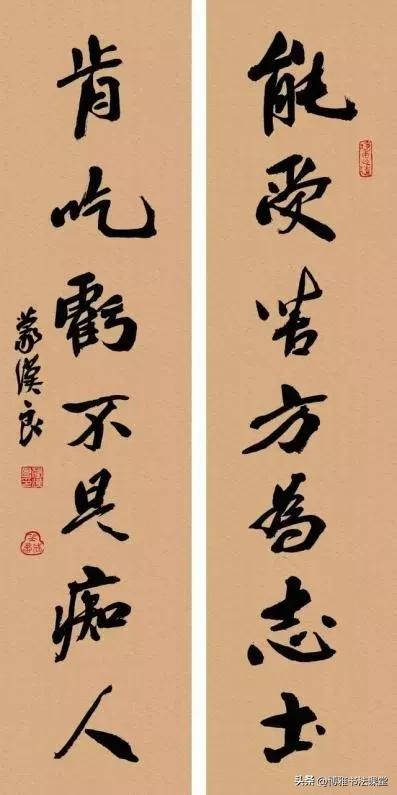 能受苦方為志士
肯吃虧不是痴人
蒙漢良
头条 @博雅书法课堂